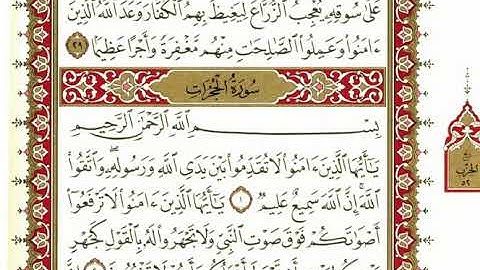 عَلَىٰ سُوقِهِۦ يُعۡجِبُ ٱلزُّرَّاعَ لِيَغِيظَ بِهِمُ ٱلۡكُفَّارَۗ وَعَدَ ٱللَّهُ ٱلَّذِينَ
ءَامَنُواْ وَعَمِلُواْ ٱلصَّٰلِحَٰتِ مِنۡهُم مَّغۡفِرَةٗ وَأَجۡرًا عَظِيمَۢا ٢٩
سُورَةُ الحُجُرَاتِ
بِسۡمِ ٱللَّهِ ٱلرَّحۡمَٰنِ ٱلرَّحِيمِ
يَٰٓأَيُّهَا ٱلَّذِينَ ءَامَنُواْ لَا تُقَدِّمُواْ بَيۡنَ يَدَيِ ٱللَّهِ وَرَسُولِهِۦۖ وَٱتَّقُواْ
ٱللَّهَۚ إِنَّ ٱللَّهَ سَمِيعٌ عَلِيمٞ ١ يَٰٓأَيُّهَا ٱلَّذِينَ ءَامَنُواْ لَا تَرۡفَعُوٓاْ
أَصۡوَٰتَكُمۡ فَوۡقَ صَوۡتِ ٱلنَّبِيِّ وَلَا تَجۡهَرُواْ لَهُۥ بِٱلۡقَوۡلِ كَجَهۡرِ
الحِزْب
٥٢